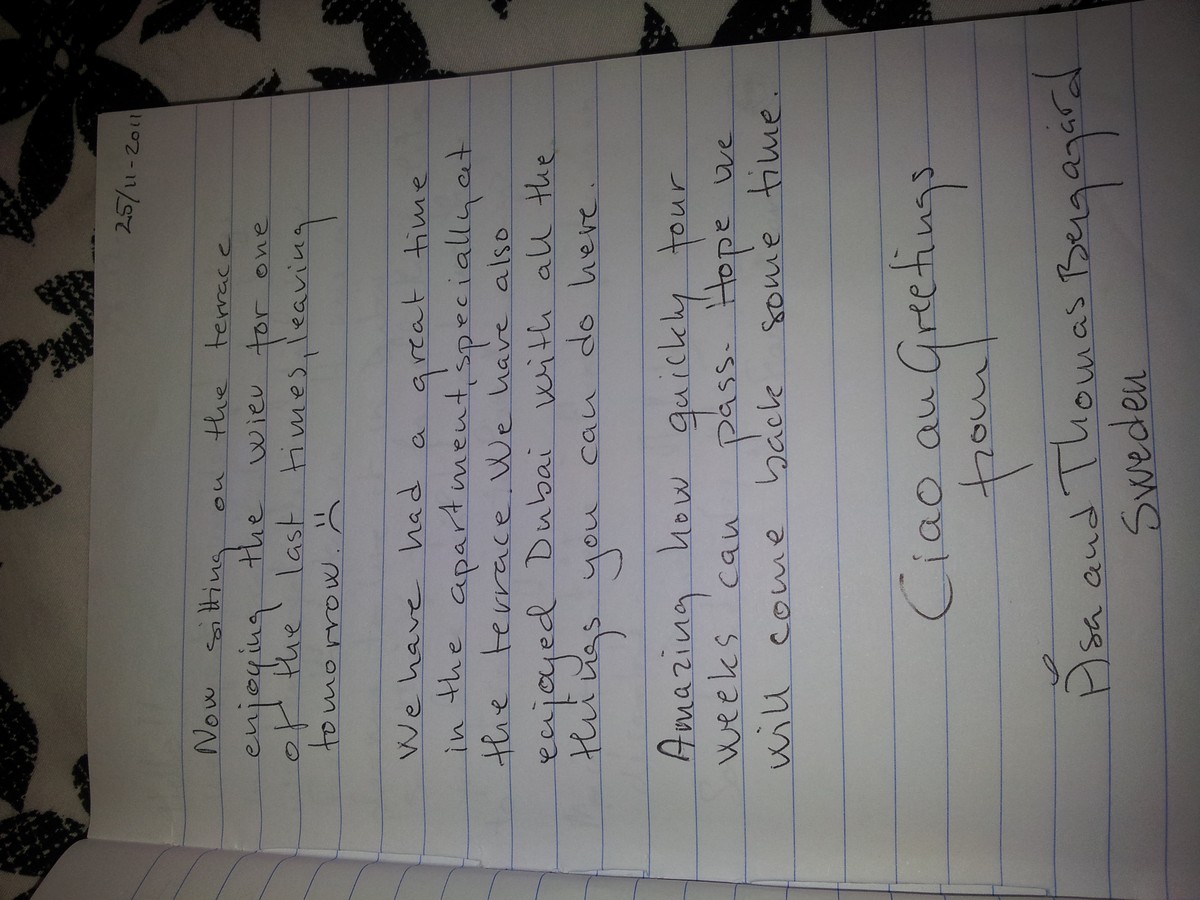 25/11-2011
Now sitting on the terrace
enjoying the wiev for one
of the last times, leaving
tomorrow. :(
We have had a great time
in the apartment, specially at
the terrace. We have also
enjoyed Dubai with all the
things you can do here.
Amazing how quickly four
weeks can pass. Hope we
will come back some time.
Ciao an Greetings
from
Åsa and Thomas Bengagård
Sweden